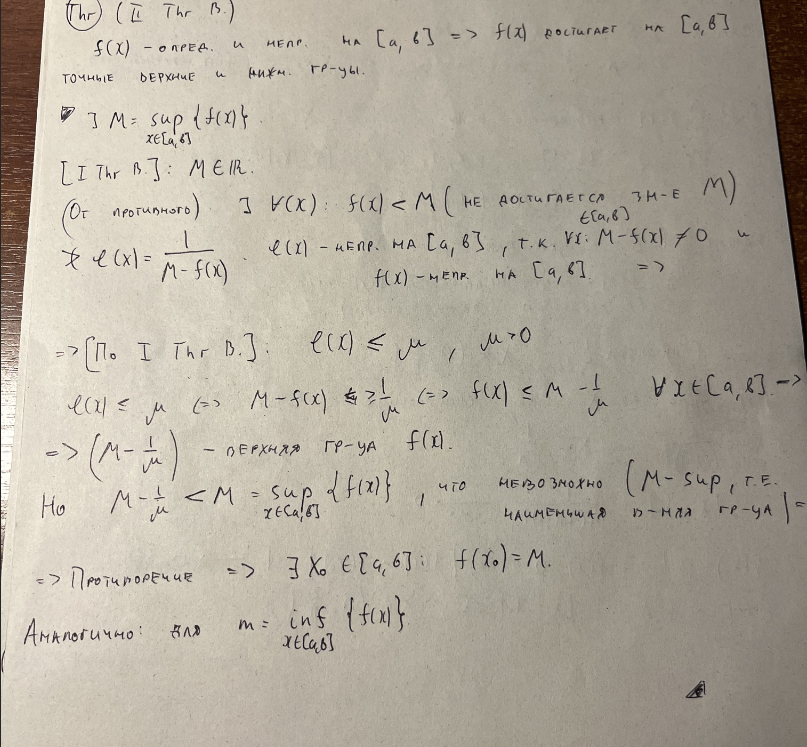 Thr (II Thr В.)
f(x) - опред. и непр. на [a, b] => f(x) достигает на [a, b]
точные верхние и нижн. гр-цы.
] M = sup {f(x)}.
x∈[a,b]
[I Thr В.]: M ∈ ℝ.
(От противного) ] ∀(x): f(x) < M (не достигается зн-е M)
∈[a,b]
φ(x) = 1/(M - f(x)). φ(x) - непр. на [a, b], т.к. ∀x: M - f(x) ≠ 0 и
f(x) - непр. на [a, b]. =>
=> [По I Thr В.]: φ(x) ≤ μ, μ > 0
φ(x) ≤ μ <=> M - f(x) ≥ 1/μ <=> f(x) ≤ M - 1/μ ∀x ∈ [a, b]. =>
=> (M - 1/μ) - верхняя гр-ца f(x).
Но M - 1/μ < M = sup {f(x)}, что невозможно (M - sup, т.е.
x∈[a,b] наименьшая в-няя гр-ца) =
=> Противоречие => ∃ x₀ ∈ [a, b]: f(x₀) = M.
Аналогично: для m = inf {f(x)}
x∈[a,b]